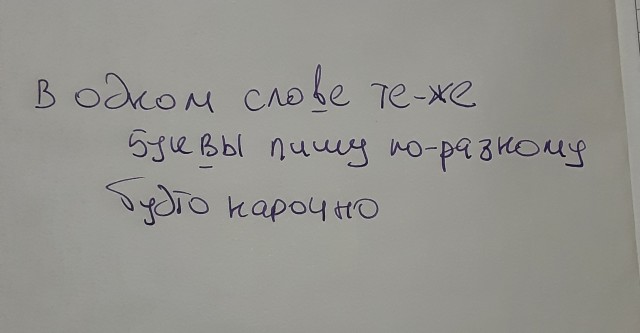 В одном слове те-же
буквы пишу по-разному
будто нарочно